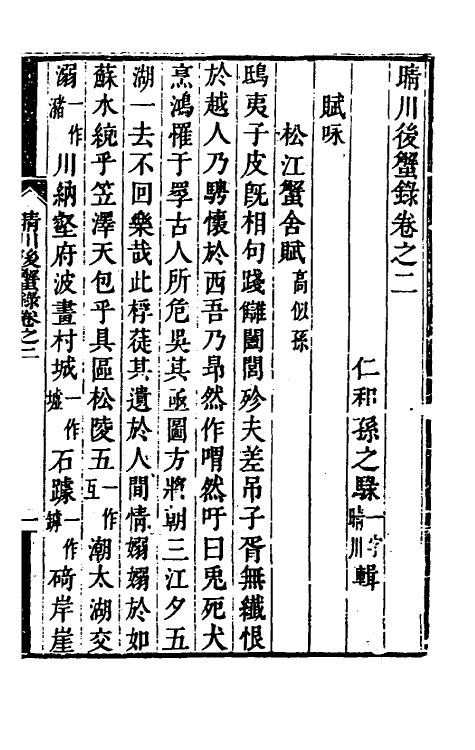 晴川後蟹錄卷之二
仁和孫之騄一字晴川輯
賦咏
松江蟹舍賦高似孫
鴟夷子皮旣相句踐讎闔閭殄夫差吊子胥無纖恨
於越人乃騁懷於西吾乃昂然作喟然吁曰兎死犬
烹鴻罹于罦古人所危吳其亟圖方將朝三江夕五
湖一去不回樂哉此桴蓰其遺於人間情嫋嫋於如
蘇水統乎笠澤天包乎具區松陵五一作互潮太湖交
溺一作瀦川納壑府波畫村城一作墟石躆一作罅碕岸崖
晴川後蟹錄卷之二 一